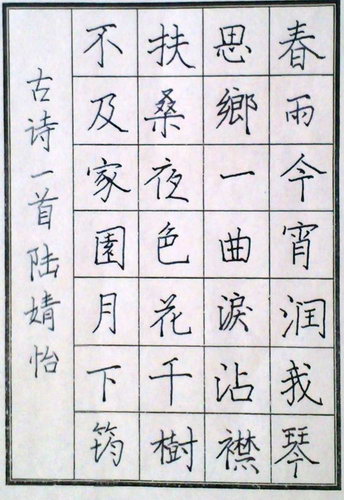 春雨今宵润我琴
思鄉一曲淚沾襟
扶桑夜色花千樹
不及家園月下筠
古诗一首陆婧怡